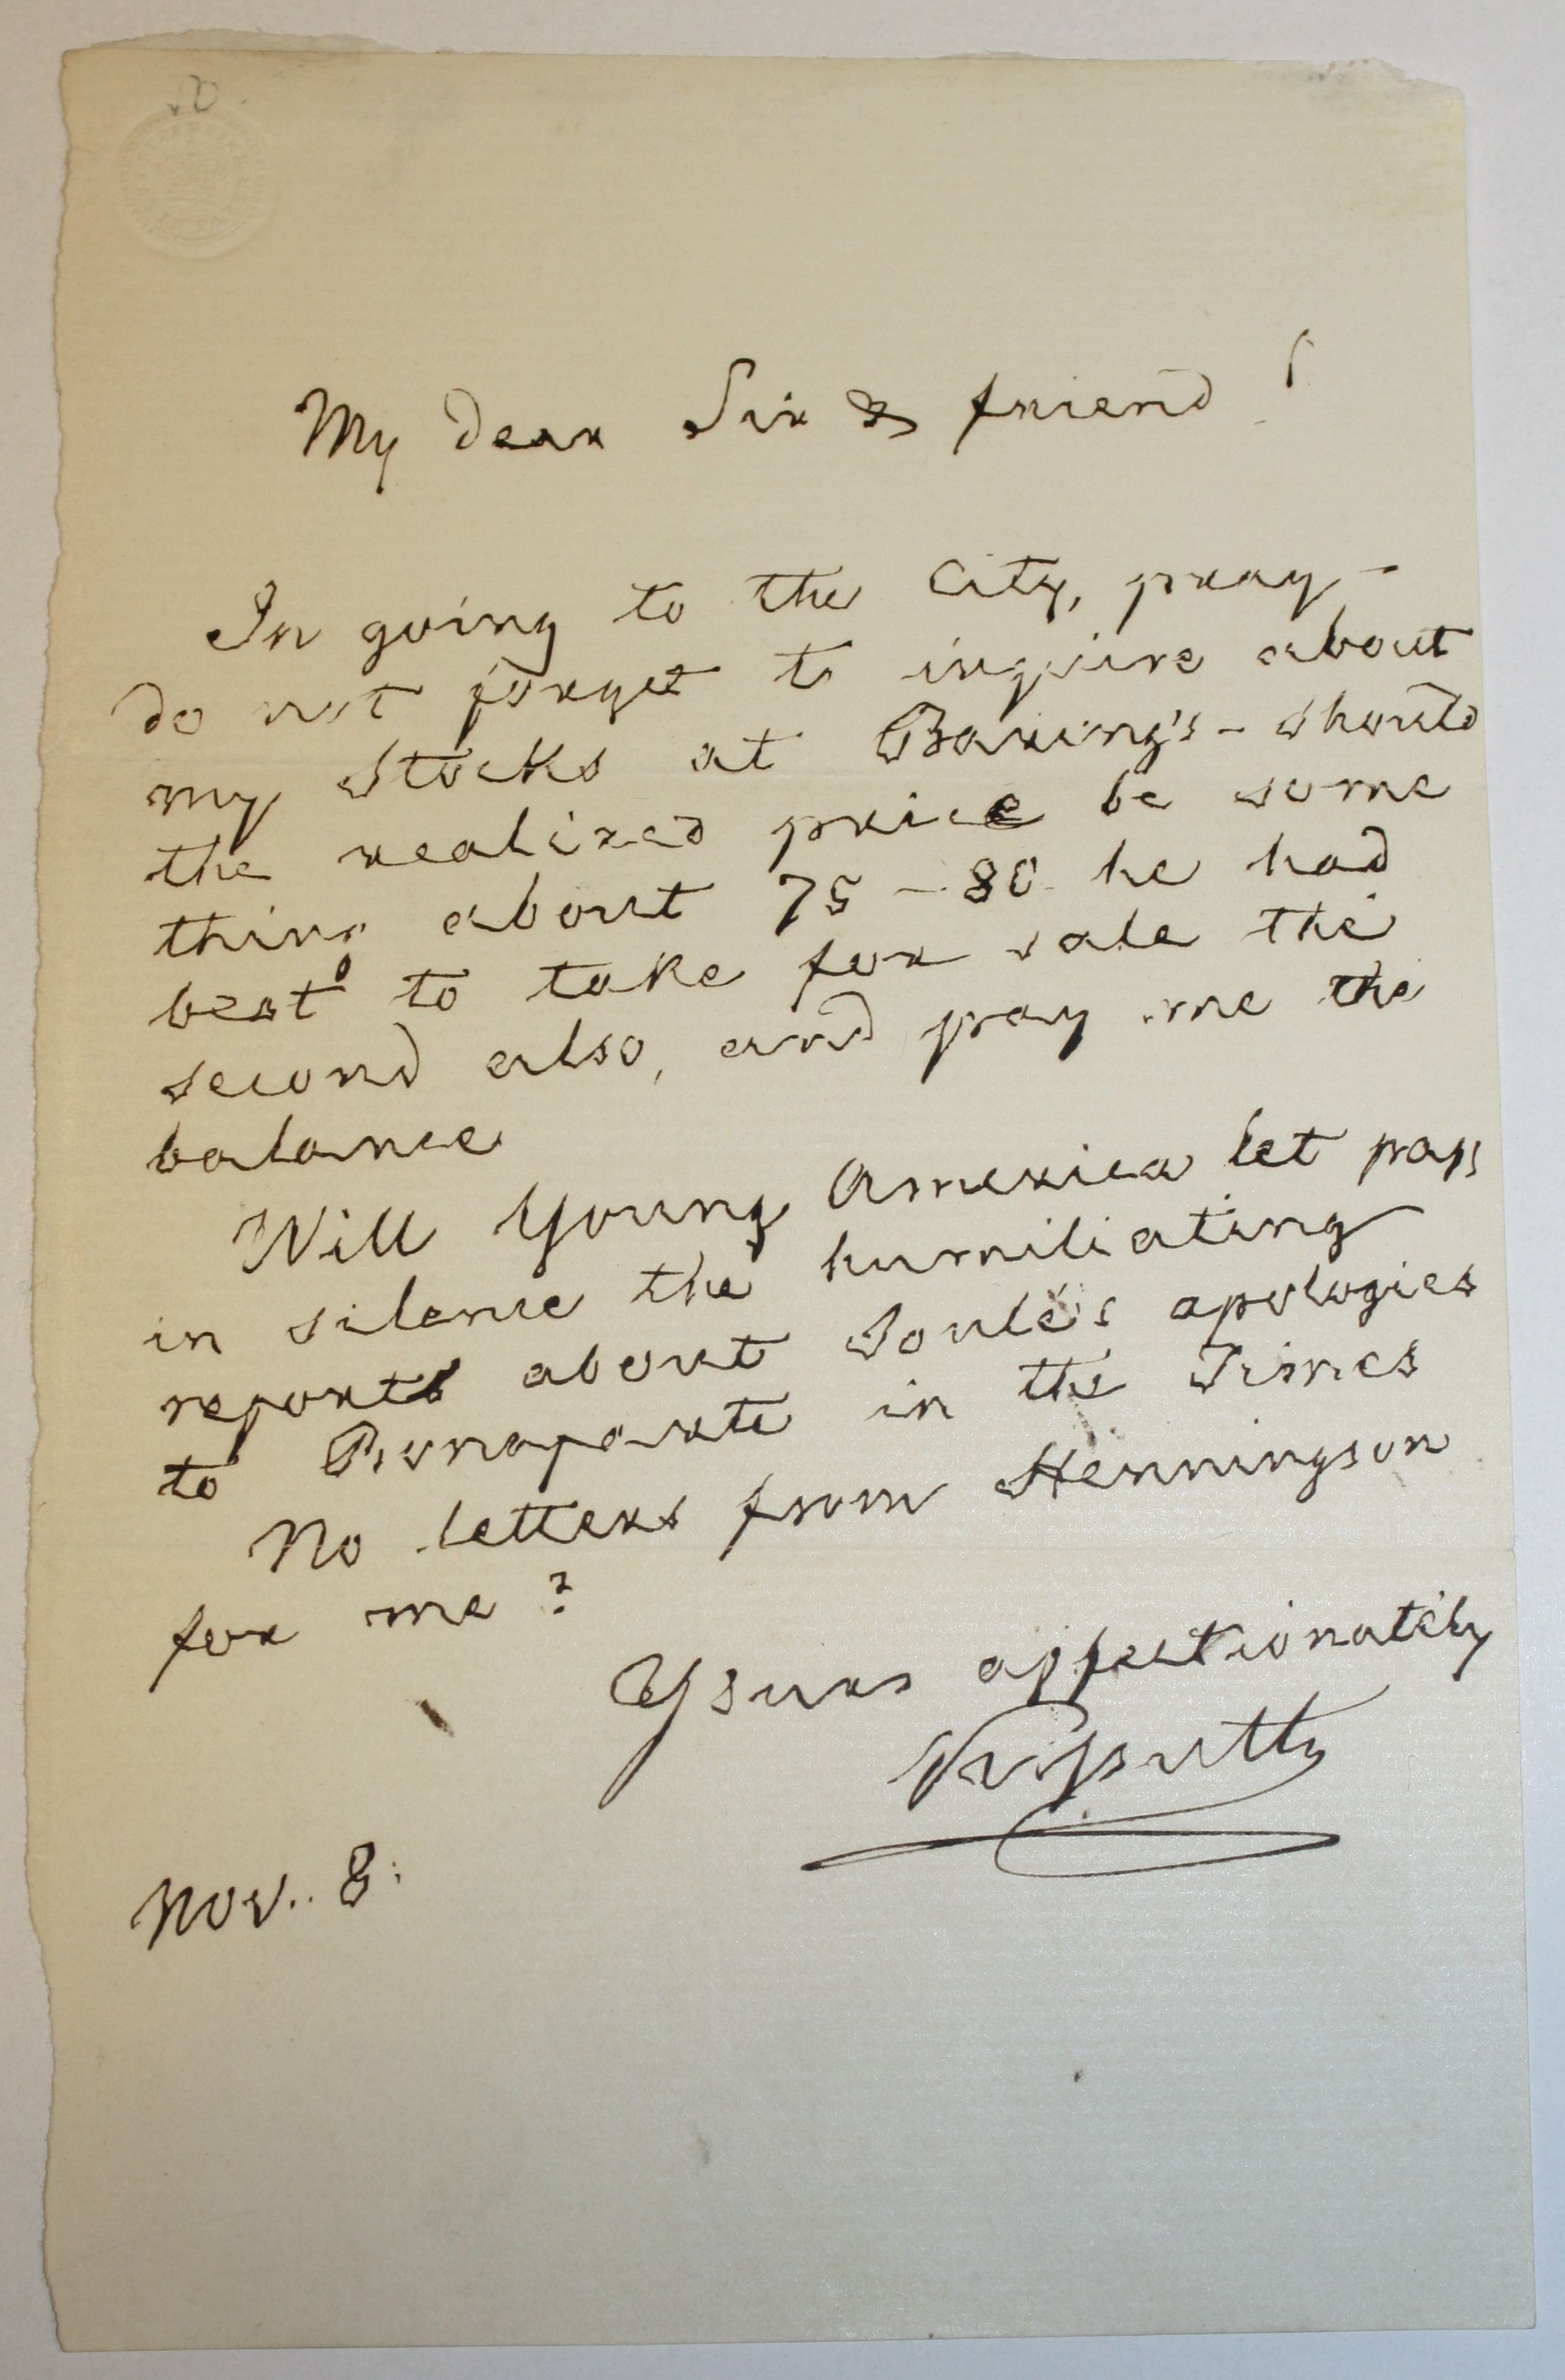 My dear Sir & friend!
In going to the City, pray
do not forget to inquire about
my Stocks at Baring's - should
the realized price be some
thing about 75 - 80 he had
best to take for sale the
second also, and pay me the
balance
Will Young America let pass
in silence the humiliating
reports about Soulé's apologies
to Bonaparte in the Times
No letters from Henningson
for me?
Yours affectionately
Kossuth
Nov. 8.